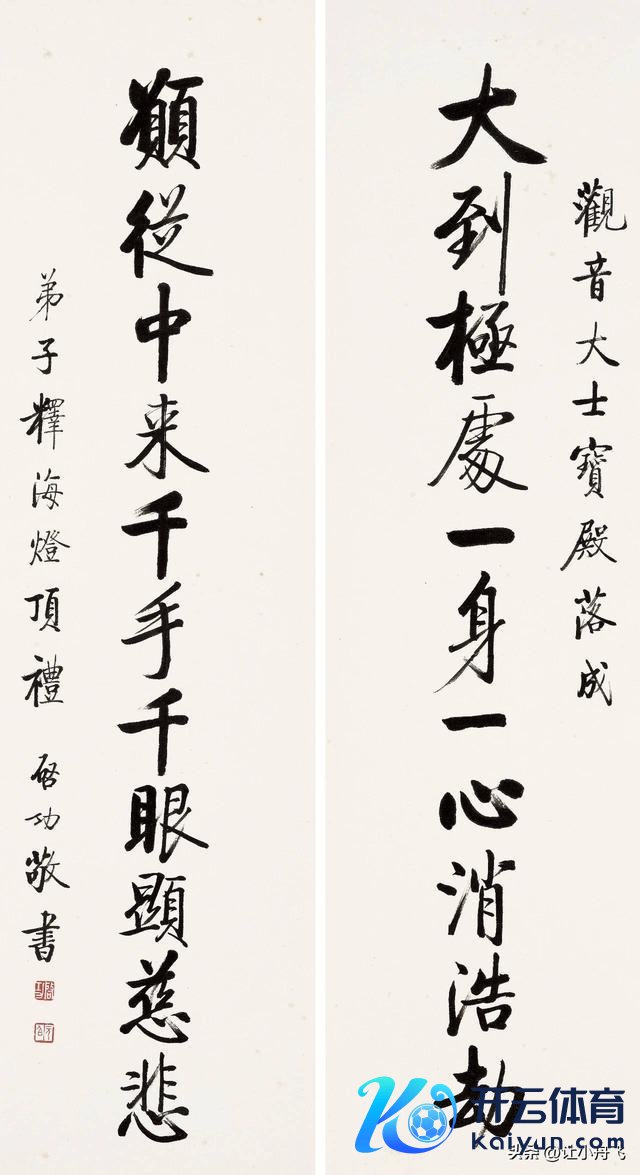 觀音大士寶殿落成
大到極處一身一心消浩劫
願從中来千手千眼顯慈悲
弟子釋海燈頂禮 启功敬書
开云体育
Kaiyun.com